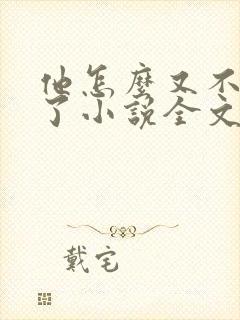 他怎麽又不
了小說全文
戴宅